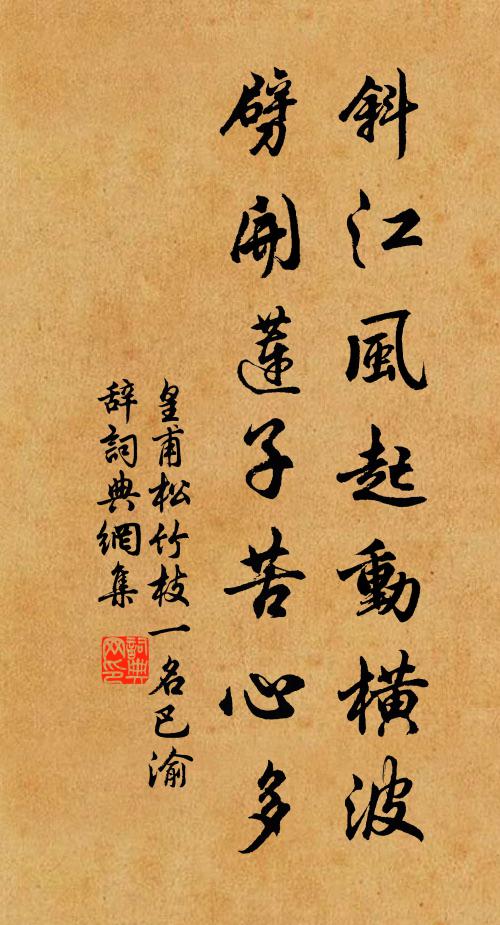 斜江風起動橫波
劈開蓮子苦心多
皇甫松竹枝一名巴渝
辞詞典網集
詞典网印